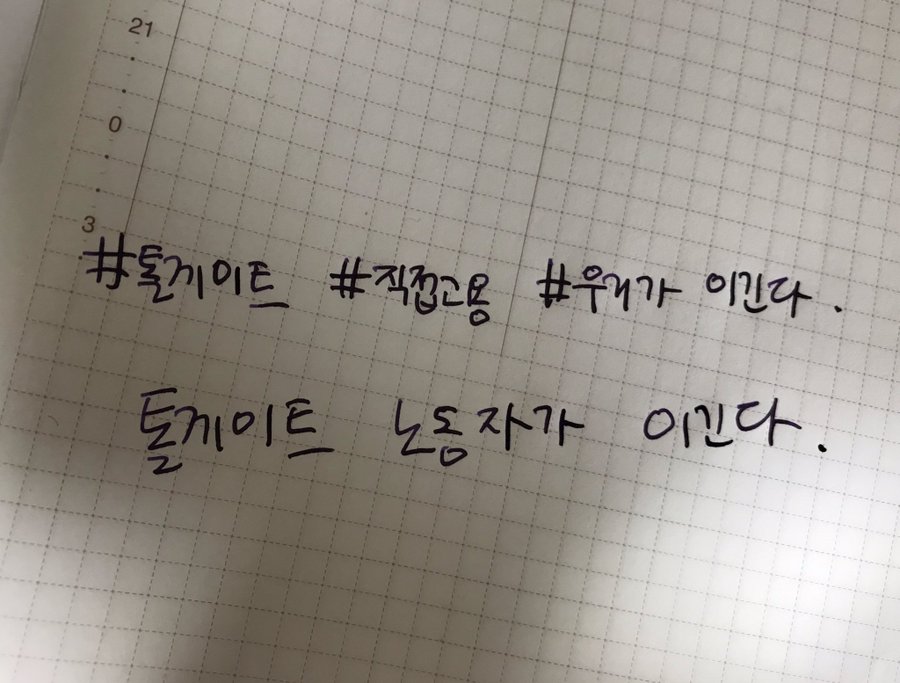 21
0
3
#톨게이트 #직접고용 #우리가 이긴다.
톨게이트 노동자가 이긴다.